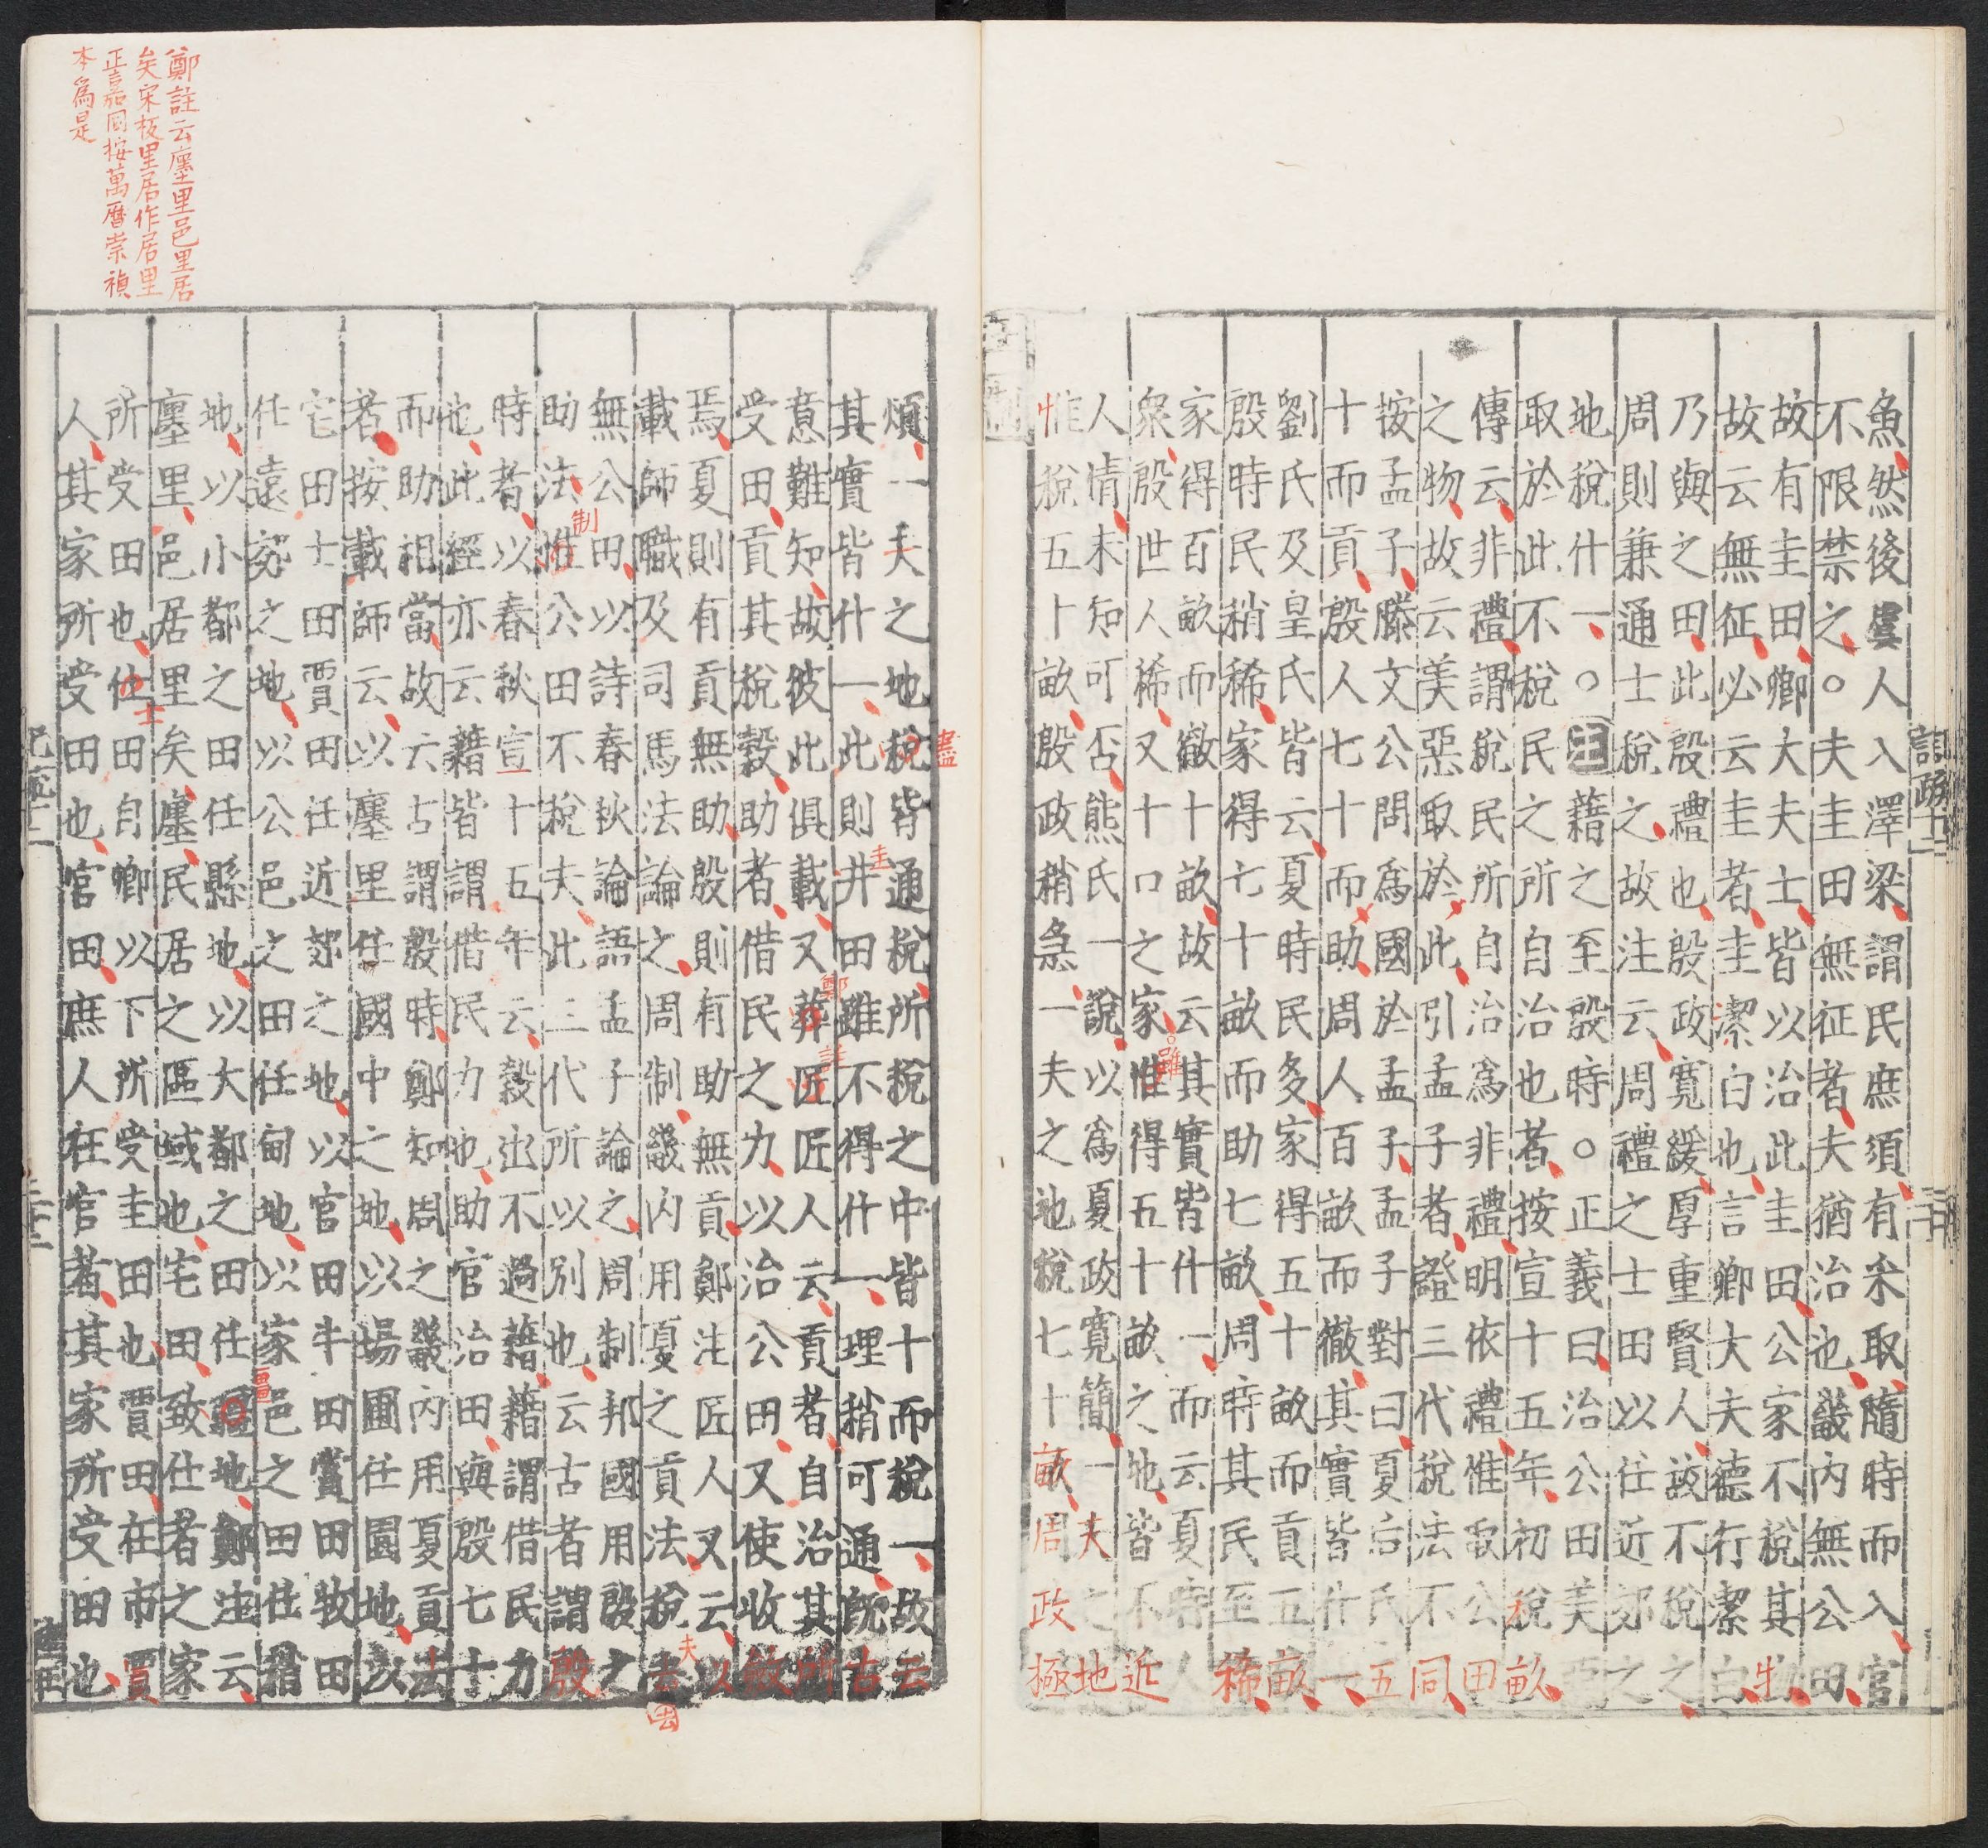 魚然後虞人入澤梁謂民庶須有米取隨時而入官
不限禁之○夫圭田無征者夫猶治也畿內無公田
故有圭田卿大夫士皆以治此圭田公家不稅其物
故云無征必云圭者圭潔白也言卿大夫德行潔白
乃與之田此殷禮也殷政寬緩厚重賢人故不稅之
周則兼通士稅之故注云周禮之士田以任近郊之
地稅什一○注藉之至殷時○正義曰治公田美惡
取於此不稅民之所自治也者按宣十五年初稅畝
傳云非禮謂稅民所自治為非禮明依禮惟取公田
之物故云美惡取於此引孟子者證三代稅法不同
按孟子滕文公問為國於孟子孟子對曰夏后氏五
十而貢殷人七十而助周人百畝而徹其實皆什一
劉氏及皇氏皆云夏時民多家得五十畝而貢五畝
殷時民稍稀家得七十畝而助七畝周時其民至稀
家得百畝而徹十畝故云其實皆什一而云夏時人
衆殷世人稀又十口之家惟得五十畝之地皆不近
人情未知可否熊氏一說以為夏政寬簡一夫之地
惟稅五十畝殷政稍急一夫之地稅七十畝周政極
煩一夫之地稅皆通稅所稅之中皆十而稅一故云
其實皆什一此則井田雖不得什一理稍可通既古
意難知故彼此俱載又葬匠匠人云貢者自治其所
受田貢其稅穀助者借民之力以治公田又使收斂
焉夏則有貢無助殷則有助無貢鄭注匠人又云以
載師職及司馬法論之周制畿内用夏之貢法稅夫
無公田以詩春秋論語孟子論之周制邦國用殷之
助法惟公田不稅夫此三代所以別也云古者謂殷
時者以春秋宣十五年云穀出不過藉藉謂借民力
也此經亦云藉皆謂借民力也助官治田與殷七十
而助相當故云古謂殷時鄭知周之畿內用夏貢法
者按載師云以廛里任國中之地以場圃任園地以
宅田士田賈田任近郊之地以官田牛田賞田牧田
任遠郊之地以公邑之田任甸地以家邑之田任稍
地以小都之田任縣地以大都之田任疆地鄭注云
廛里邑居里矣廛民居之區域也宅田致仕者之家
所受田也仕田自卿以下所受圭田也賈田在市賈
人其家所受田也官田庶人在官者其家所受田也
鄭註云廛里邑里居
矣宋板里居作居里
正嘉同按萬曆崇禎
本爲是